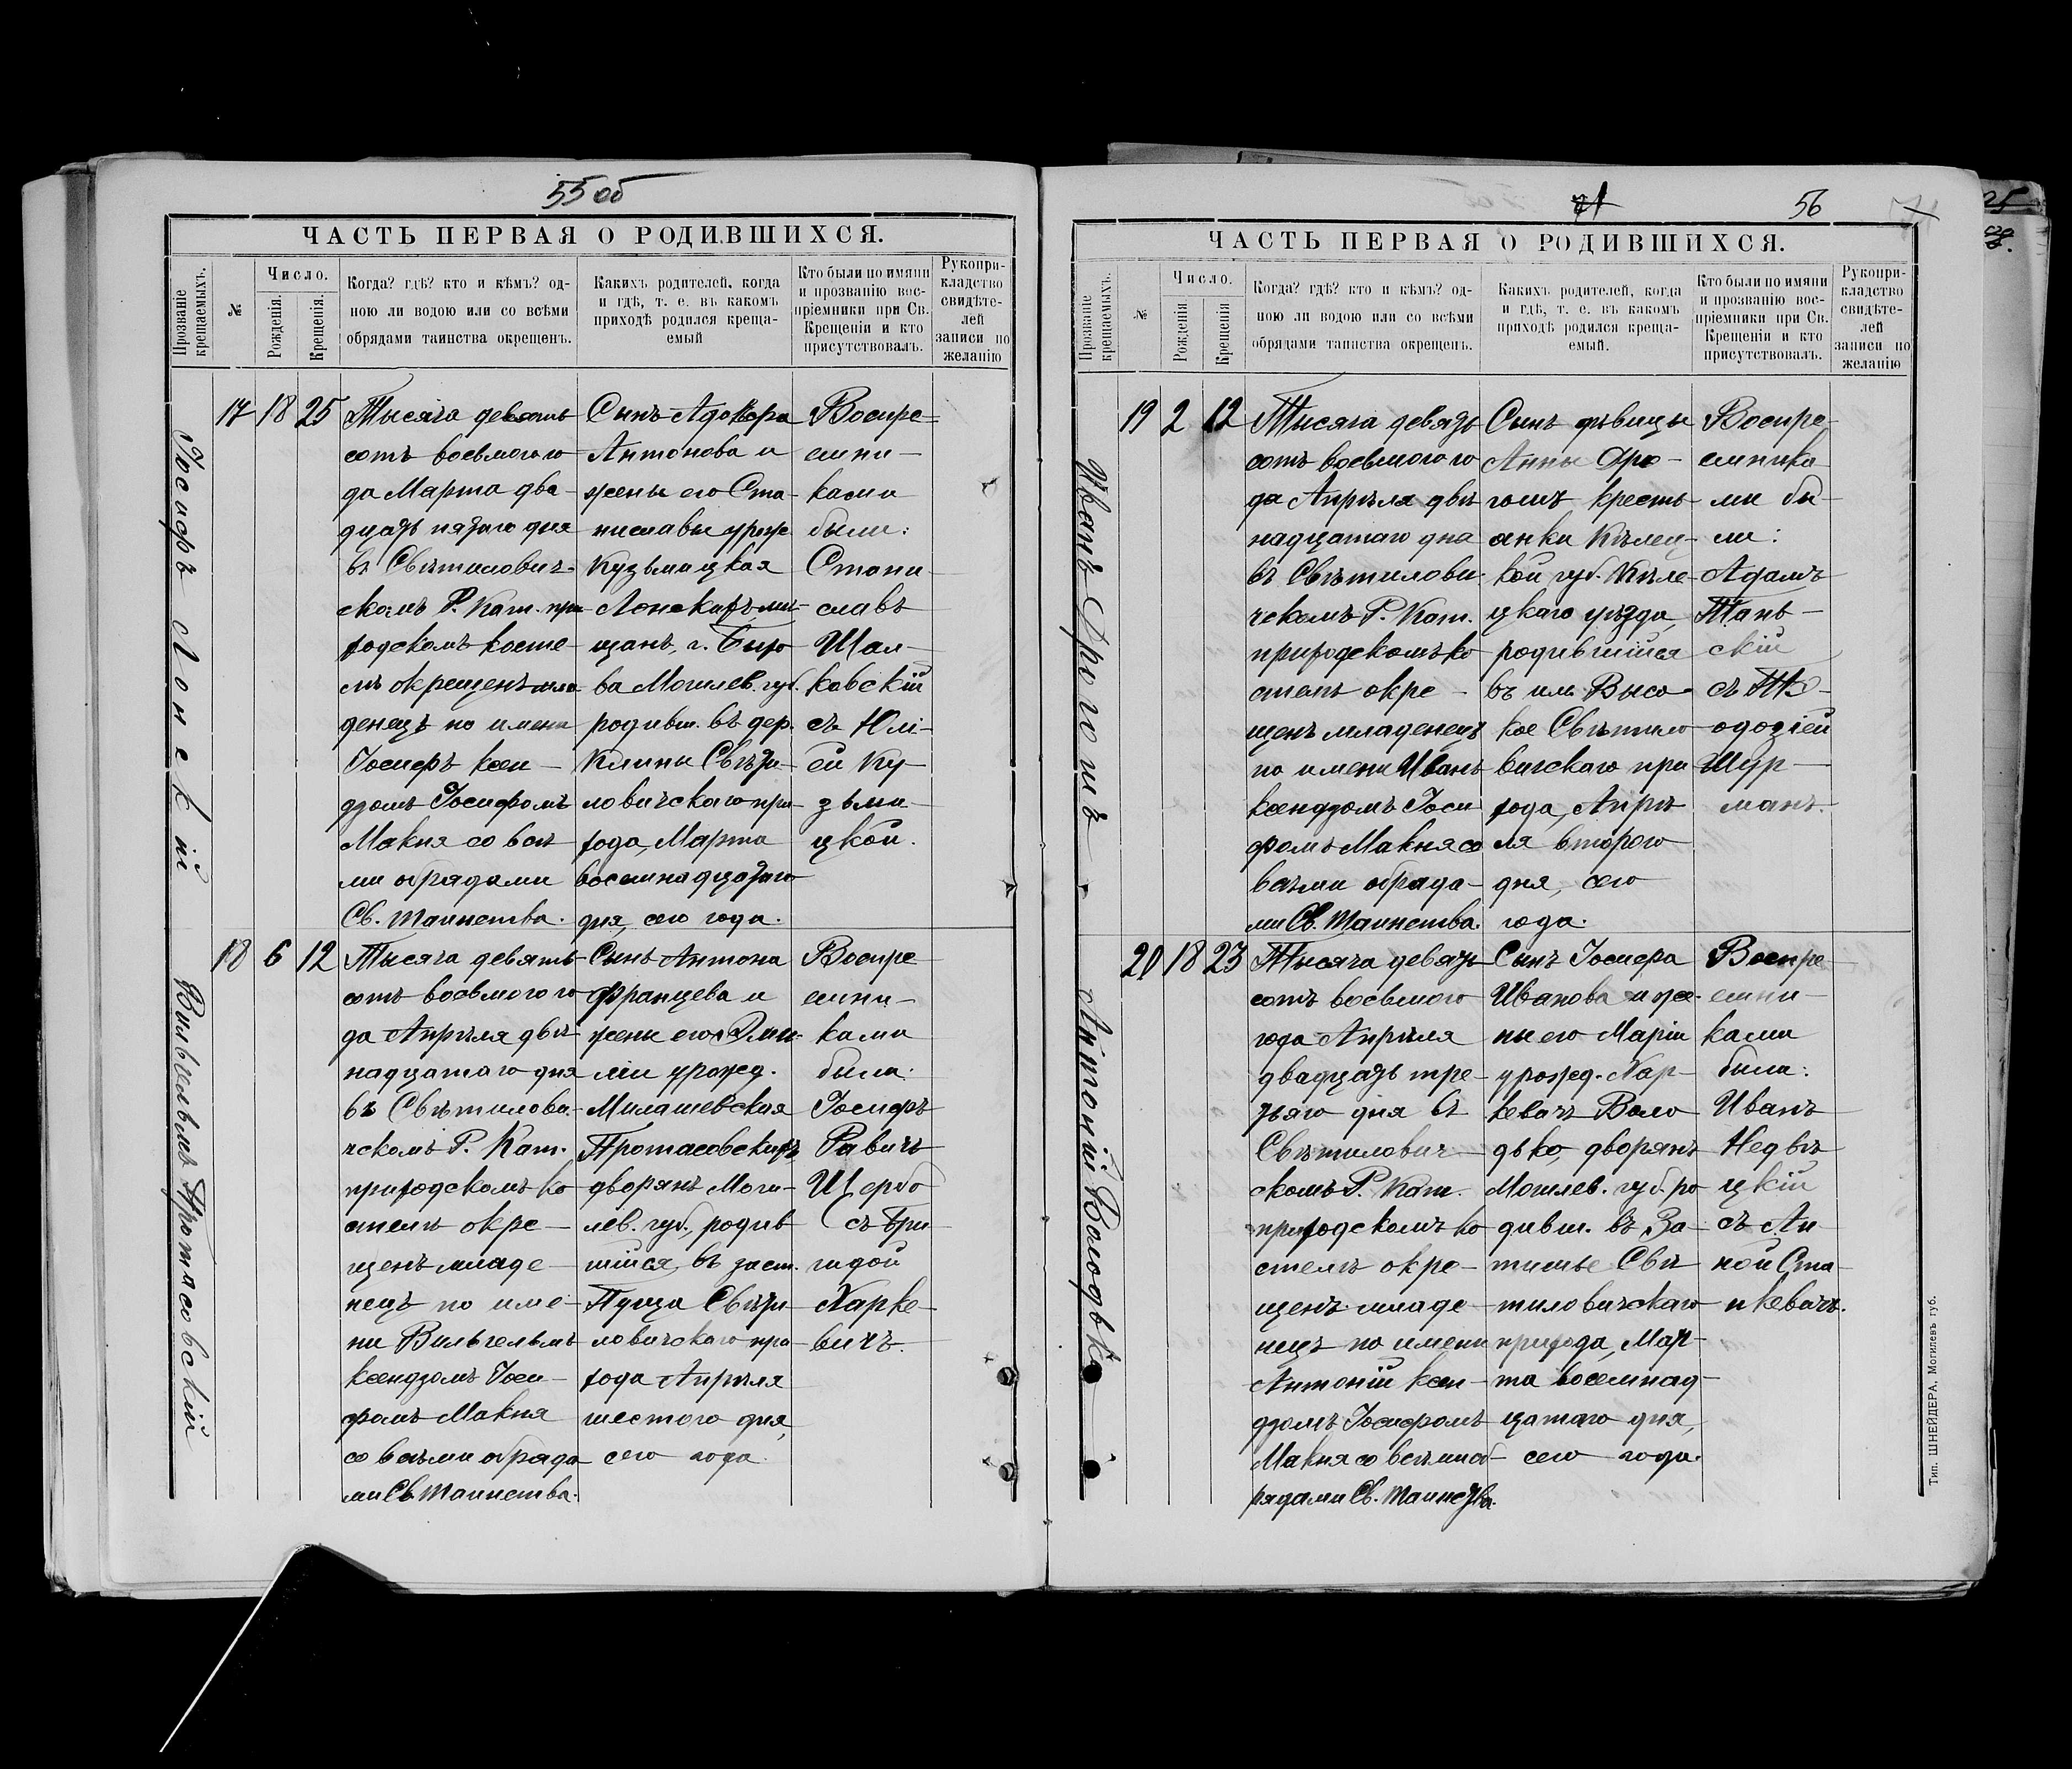 55 об
ЧАСТЬ ПЕРВАЯ О РОДИВШИХСЯ.
Прозваніе крещаемыхъ.
№
Число.
Рожденія.
Крещенія.
Когда? гдѣ? кто и кѣмъ? од-
ною ли водою или со всѣми
обрядами таинства окрещенъ.
Какихъ родителей, когда
и гдѣ, т. е. въ какомъ
приходѣ родился креща-
емый
Кто были по имяни
и прозванію вос-
пріемники при Св.
Крещеніи и кто
присутствовалъ.
Рукопри-
кладство
свидѣте-
лей
записи по
желанію
Іосифъ Лонскій
17 18 25
Тысяча девять
сотъ восьмого го
да Марта два-
дцать пятаго дня
въ Свѣтилович-
скомъ Р. Кат. при
ходскомъ косте-
лѣ окрещенъ мла
денецъ по имени
Іосифъ ксен-
дзомъ Іосифомъ
Макня со всѣ
ми обрядами
Св. Таинства.
Сынъ
Антонова и
жены его Ста-
ниславы урож.
Кузьмицкая
мѣ-
щанъ, г.
ва Могилев. губ.
родивш. въ дер.
Клины Свѣти-
ловичскаго при-
хода, Марта
восемнадцатаго
дня, сего года.
Воспре-
емни-
ками
были:
Стани-
славъ
Шал-
ковскій
съ Юлі-
ей Ку-
зьми-
цкой.
Вильгельмъ Протасовскій
18 6 12
Тысяча девять
сотъ восьмого го
да Апрѣля двѣ
надцатаго дня
въ Свѣтилови-
чскомъ Р. Кат.
приходскомъ ко
стелѣ окре-
щенъ младе-
нецъ по име-
ни Вильгельмъ
ксендзомъ Іоси-
фомъ Макня
со всѣми обряда
ми Св. Таинства.
Сынъ Антона
Францева и
жены его Эми-
ліи урожд.
Милашевская
Протасовскихъ,
дворянъ Моги-
лев. губ., родив
шійся, въ заст.
Пуща Свѣти-
ловичскаго при-
хода Апрѣля
шестого дня,
сего года.
Воспре
емни-
ками
были:
Іосифъ
Равичъ
Щербо
съ Бри-
гидой
Харке-
вичъ.
71
56
ЧАСТЬ ПЕРВАЯ О РОДИВШИХСЯ.
Прозваніе крещаемыхъ.
№
Число.
Рожденія
Крещенія
Когда? гдѣ? кто и кѣмъ? од-
ною ли водою или со всѣми
обрядами таинства окрещенъ.
Какихъ родителей, когда
и гдѣ, т. е. въ какомъ
приходѣ родился креща-
емый.
Кто были по имяни
и прозванію вос-
пріемники при Св.
Крещеніи и кто
присутствовалъ.
Рукопри-
кладство
свидѣте-
лей
записи по
желанію
Иванъ Дрогошъ
19 2 12
Тысяча девять
сотъ восьмого го
да Апрѣля двѣ
надцатаго дня
въ Свѣтилови-
чскомъ Р. Кат.
приходскомъ ко
стелѣ окре-
щенъ младенецъ
по имени Иванъ
ксендзомъ Іоси
фомъ Макня со
всѣми обряда-
ми Св. Таинства.
Сынъ дѣвицы
Анны Дро-
гошъ кресть-
янки Кѣлец-
кой губ. Кѣле-
цкаго уѣзда,
родившійся
въ им. Высо-
кое Свѣтило
вичскаго при
хода, Апрѣ
ля второго
дня, сего
года.
Воспре-
емника
ми бы-
ли:
Адамъ
Тань-
скій
съ
одозіей
Шур-
манъ.
Антоній Володько
20 18 23
Тысяча девять
сотъ восьмого
года Апрѣля
двадцать тре-
тьяго дня въ
Свѣтилович-
скомъ Р. Кат.
приходскомъ ко
стелѣ окре-
щенъ младе-
нецъ по имени
Антоній ксен-
дзомъ Іосифомъ
Макня со всѣми об-
рядами Св. Таинства.
Сынъ Іосифа
Иванова и же-
ны его Маріи
урожд. Хар-
кевичъ Воло
дько, дворянъ
Могилев. губ. ро
дивш. въ За-
тишье Свѣ
тиловичскаго
прихода, Мар-
та восемнад-
цатаго дня,
сего года.
Воспре-
емни-
ками
были:
Иванъ
Недвѣ
цкій
съ Ан-
ной Ста-
нкевичъ.
Тип. ШНЕЙДЕРА, Могилевъ губ.